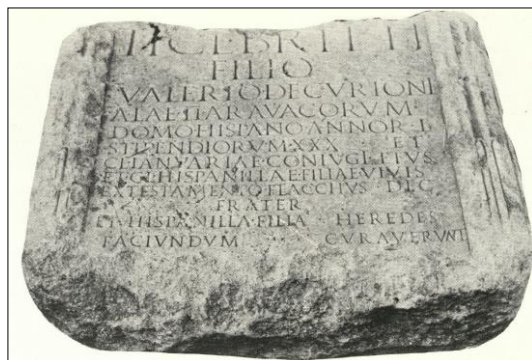 TI CL BRITTI
FILIO
VALERIO DECVRIONI
ALAE II ARAVACORVM
DOMO HISPANO ANNOR L
STIPENDIORVM XXX ET
CL IANVARIAE CONIVGI EIVS
ET CL HISPANILLAE FILIAE VIVIS
EX TESTAMENTO FLACCVS DEC
FRATER
ET HISPANILLA FILIA HEREDES
FACIVNDVM CVRAVERVNT